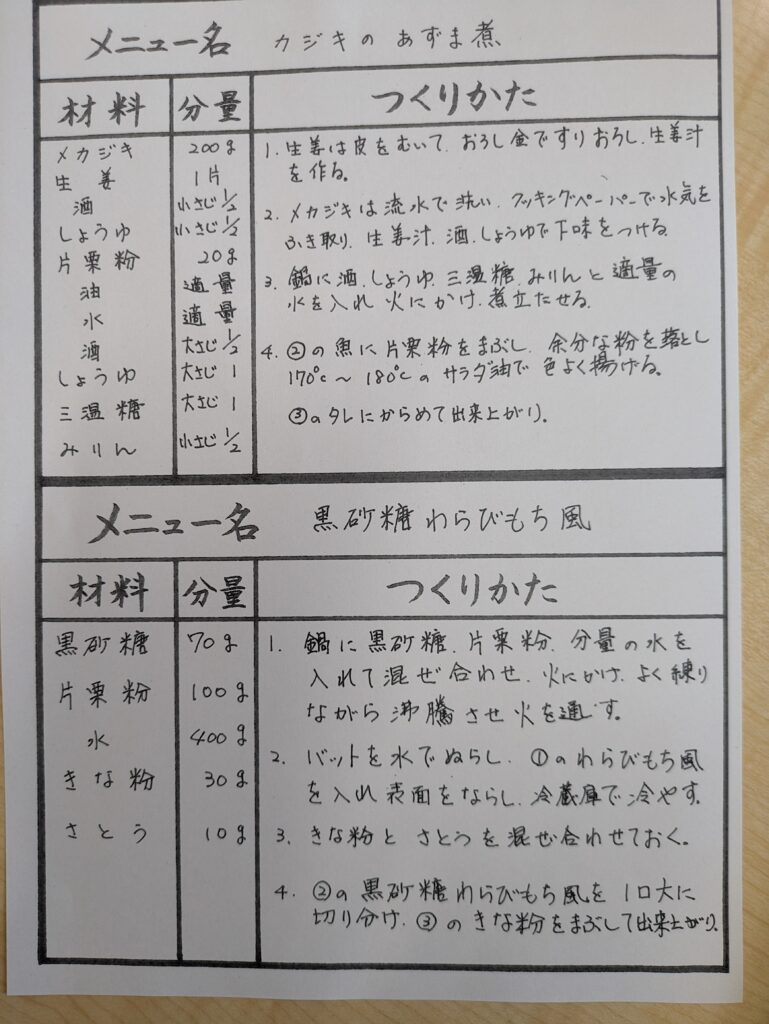 メニュー名 カジキの あずま煮
材料 分量 つくりかた
メカジキ 200g
生姜 1片
酒 小さじ1/2
しょうゆ 小さじ1/2
片栗粉 20g
油 適量
水 適量
酒 大さじ1/2
しょうゆ 大さじ1
三温糖 大さじ1
みりん 小さじ1/2
1. 生姜は皮をむいて、おろし金ですりおろし、生姜汁
を作る。
2. メカジキは流水で洗い、クッキングペーパーで水気を
ふき取り、生姜汁、酒、しょうゆで下味をつける。
3. 鍋に酒、しょうゆ、三温糖、みりんと適量の
水を入れ火にかけ、煮立たせる。
4. ②の魚に片栗粉をまぶし、余分な粉を落とし
170℃～180℃のサラダ油で色よく揚げる。
③のタレにからめて出来上がり。
メニュー名 黒砂糖わらびもち風
材料 分量 つくりかた
黒砂糖 70g
片栗粉 100g
水 400g
きな粉 30g
さとう 10g
1. 鍋に黒砂糖、片栗粉、分量の水を
入れて混ぜ合わせ、火にかけ、よく練り
ながら沸騰させ火を通す。
2. バットを水でぬらし、①のわらびもち風
を入れ表面をならし、冷蔵庫で冷やす。
3. きな粉とさとうを混ぜ合わせておく。
4. ②の黒砂糖わらびもち風を1口大に
切り分け、③のきな粉をまぶして出来上がり。